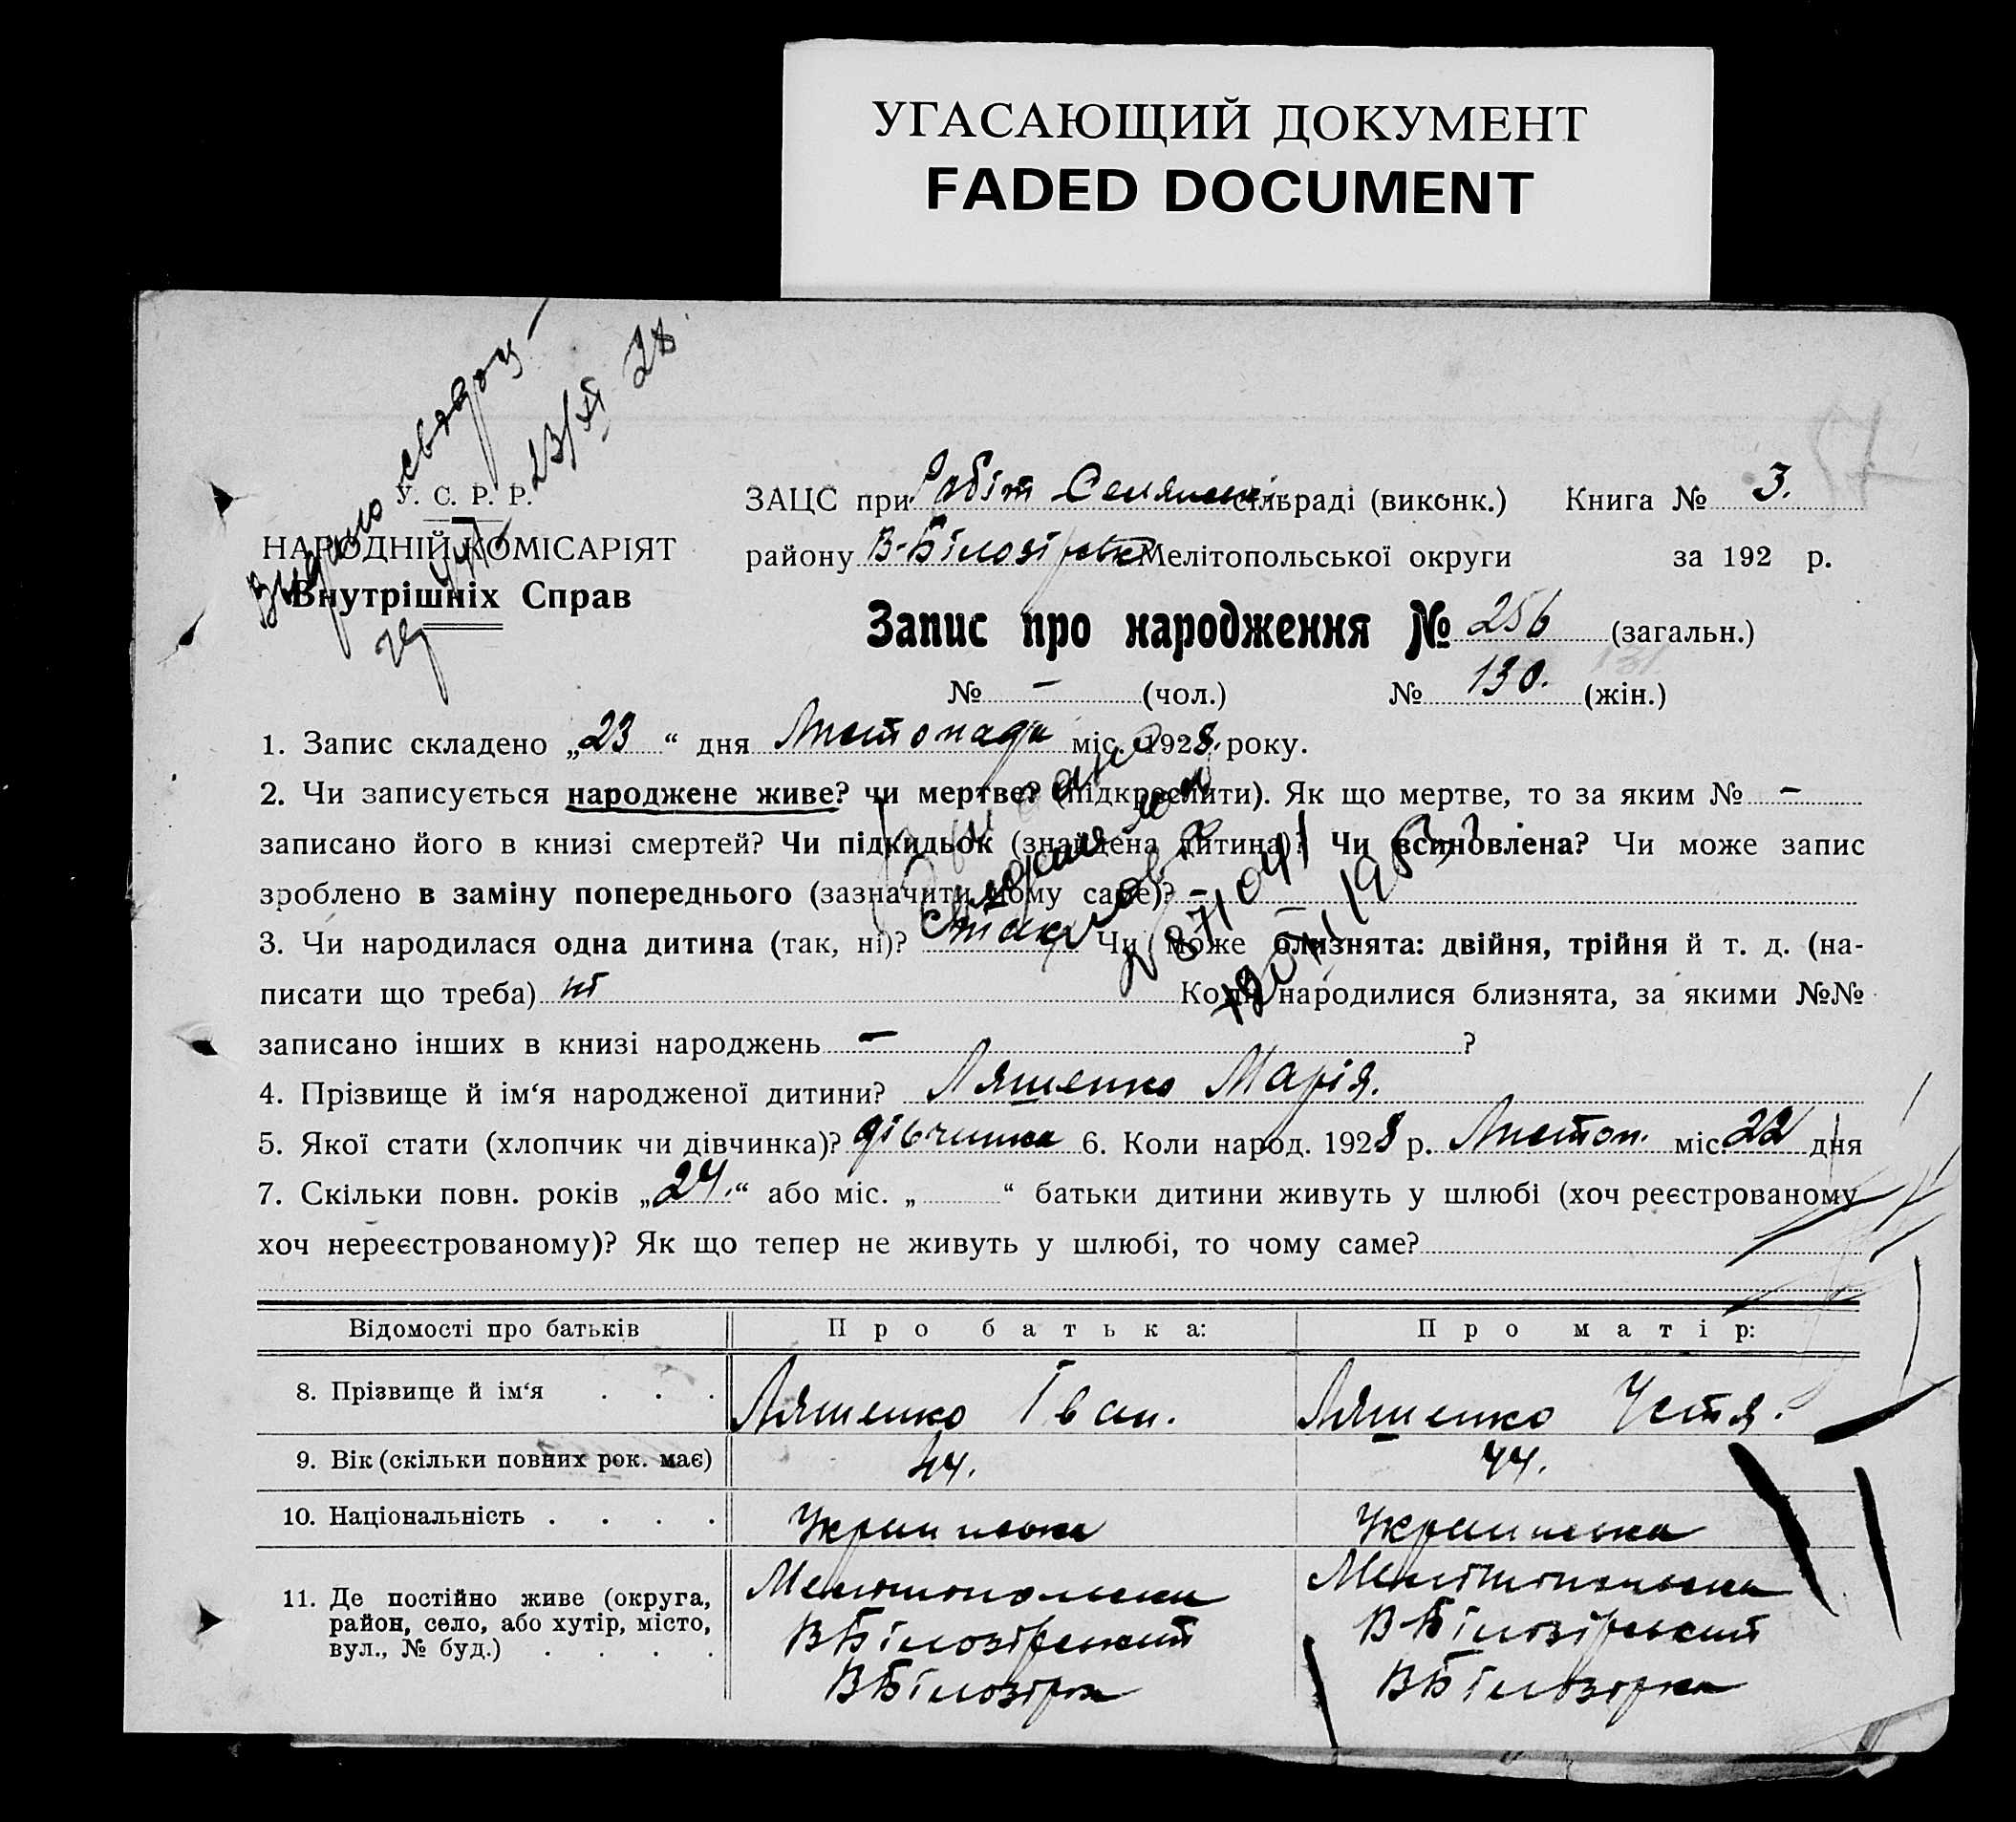 УГАСАЮЩИЙ ДОКУМЕНТ
FADED DOCUMENT
Видано свідоц
23/XI 28
У. С. Р. Р.
НАРОДНІЙ КОМІСАРІЯТ
Внутрішніх Справ
ЗАЦС при Робіт Селянськ сільраді (виконк.) Книга № 3.
району В-Білозірськ Мелітопольської округи за 192 р.
Запис про народження № 256 (загальн.)
№ – (чол.) № 130. (жін.)
1. Запис складено „23“ дня Листопада міс. 1928. року.
2. Чи записується народжене живе? чи мертве? (підкреслити). Як що мертве, то за яким № –
записано його в книзі смертей? Чи підкидьок (знайдена дитина)? Чи всиновлена? Чи може запис
зроблено в заміну попереднього (зазначити чому саме)? –
3. Чи народилася одна дитина (так, ні)? так Чи може близнята: двійня, трійня й т. д. (на-
писати що треба) ні Коли народилися близнята, за якими №№
записано інших в книзі народжень – ?
4. Прізвище й ім‘я народженої дитини? Ляшенко Марія.
5. Якої стати (хлопчик чи дівчинка)? дівчинка 6. Коли народ. 1928 р. Листоп. міс. 22 дня
7. Скільки повн. років „24.“ або міс. „ “ батьки дитини живуть у шлюбі (хоч реєстрованому
хоч нереєстрованому)? Як що тепер не живуть у шлюбі, то чому саме?
Відомості про батьків Про батька: Про матір:
8. Прізвище й ім‘я . . . Ляшенко Іван. Ляшенко Устя.
9. Вік (скільки повних рок. має) 44. 44.
10. Національність . . . . Українська Українська
11. Де постійно живе (округа, район, село, або хутір, місто, вул., № буд.) . . . .
Мелітопольська Мелітопольська
ВБілозірський В-Білозірський
ВБілозірка ВБілозірка